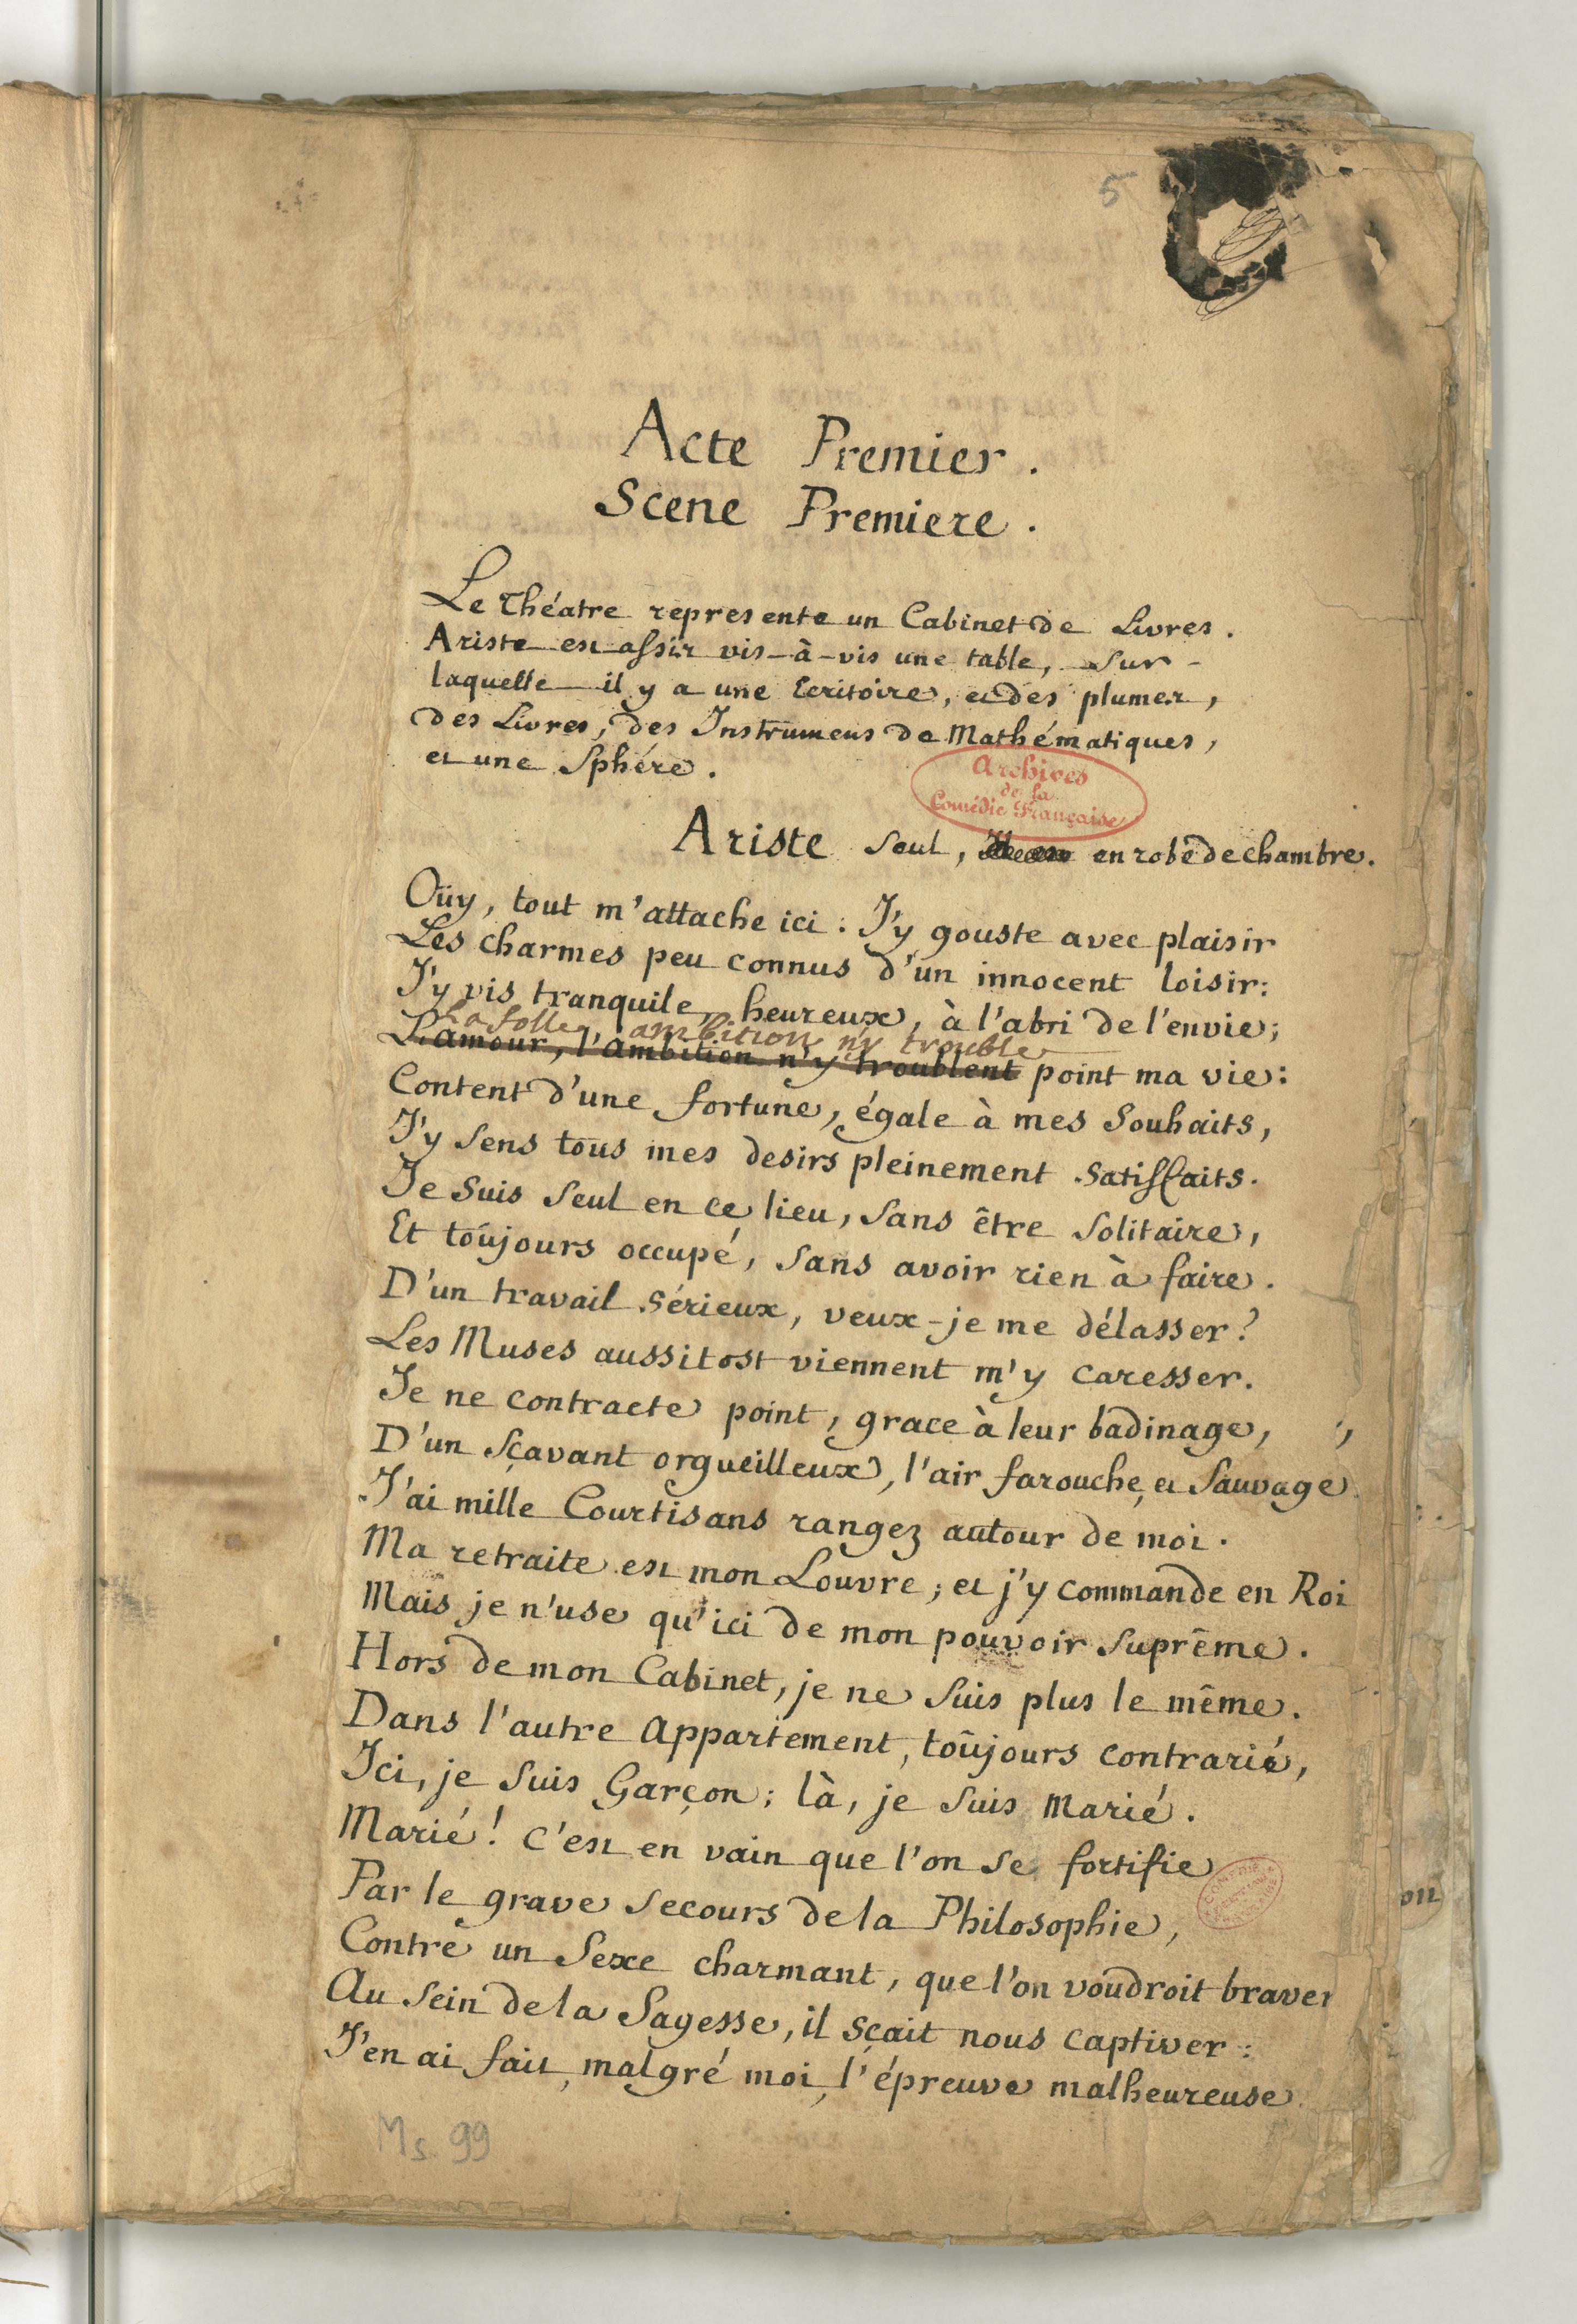 5
Acte Premier.
Scene Premiere.
Le Théatre represente un Cabinet de Livres.
Ariste est assis vis-à-vis une table, sur
laquelle il y a une Ecritoire, et des plumes,
des Livres, des Instrumens de Mathématiques,
et une Sphére.
Archives
de la
Comédie Française
Ariste seul, en robe de chambre.
Oüy, tout m'attache ici : J'y gouste avec plaisir
Les charmes peu connus d'un innocent loisir:
J'y vis tranquile, heureux, à l'abri de l'envie;
La folle ambition n'y trouble
L'amour, l'ambition n'y troublent point ma vie:
Content d'une fortune, égale à mes Souhaits,
J'y sens tous mes desirs pleinement satisfaits.
Je suis seul en ce lieu, sans être solitaire,
Et toûjours occupé, sans avoir rien à faire.
D'un travail sérieux, veux-je me délasser?
Les Muses aussitost viennent m'y caresser.
Je ne contracte point, grace à leur badinage,
D'un sçavant orgueilleux, l'air farouche, et sauvage
J'ai mille Courtisans rangez autour de moi.
Ma retraite est mon Louvre; et j'y commande en Roi
Mais je n'use qu'ici de mon pouvoir suprême.
Hors de mon Cabinet, je ne suis plus le même.
Dans l'autre Appartement, toûjours contrarié,
Ici, je suis Garçon; là, je suis Marié.
Marié! C'est en vain que l'on se fortifie
Par le grave secours de la Philosophie,
Contre un Sexe charmant, que l'on voudroit braver
Au sein de la Sagesse, il sçait nous captiver:
J'en ai fait, malgré moi, l'épreuve malheureuse
on
Ms. 99